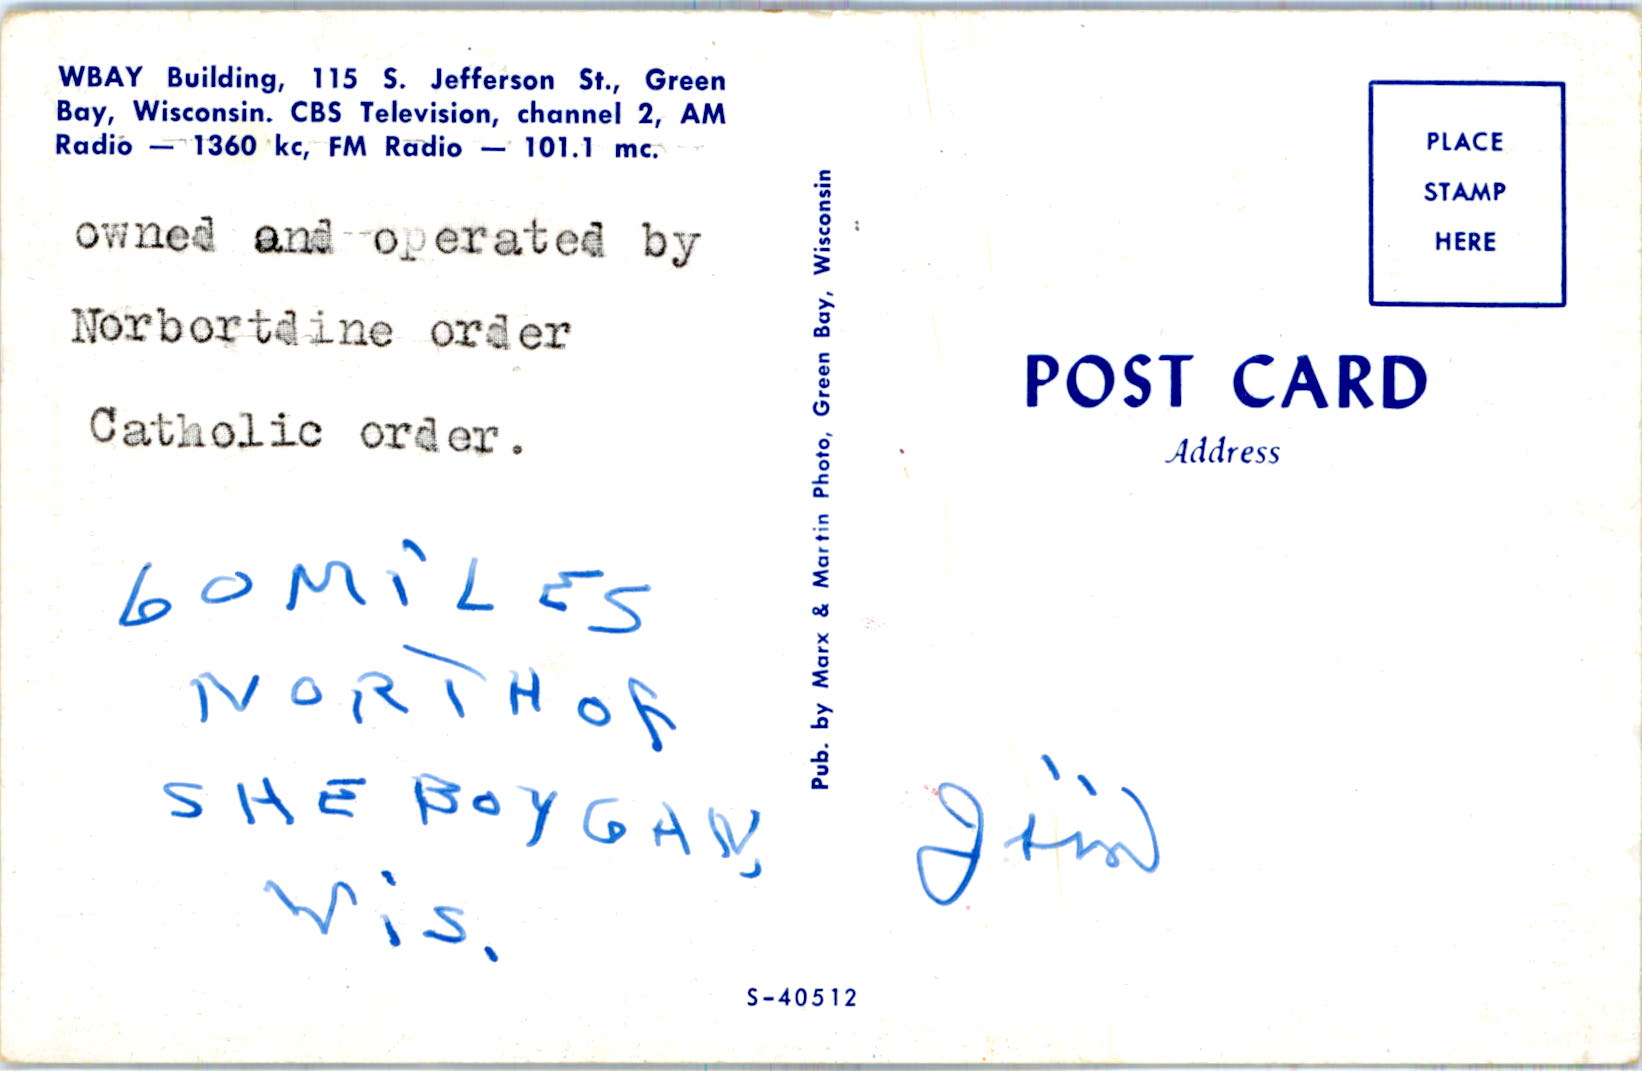 WBAY Building, 115 S. Jefferson St., Green
Bay, Wisconsin. CBS Television, channel 2, AM
Radio — 1360 kc, FM Radio — 101.1 mc.
owned and operated by
Norbortdine order
Catholic order.
60 MILES
NORTH OF
SHEBOYGAN,
Wis.
Pub. by Marx & Martin Photo, Green Bay, Wisconsin
PLACE
STAMP
HERE
POST CARD
Address
Jim
S-40512